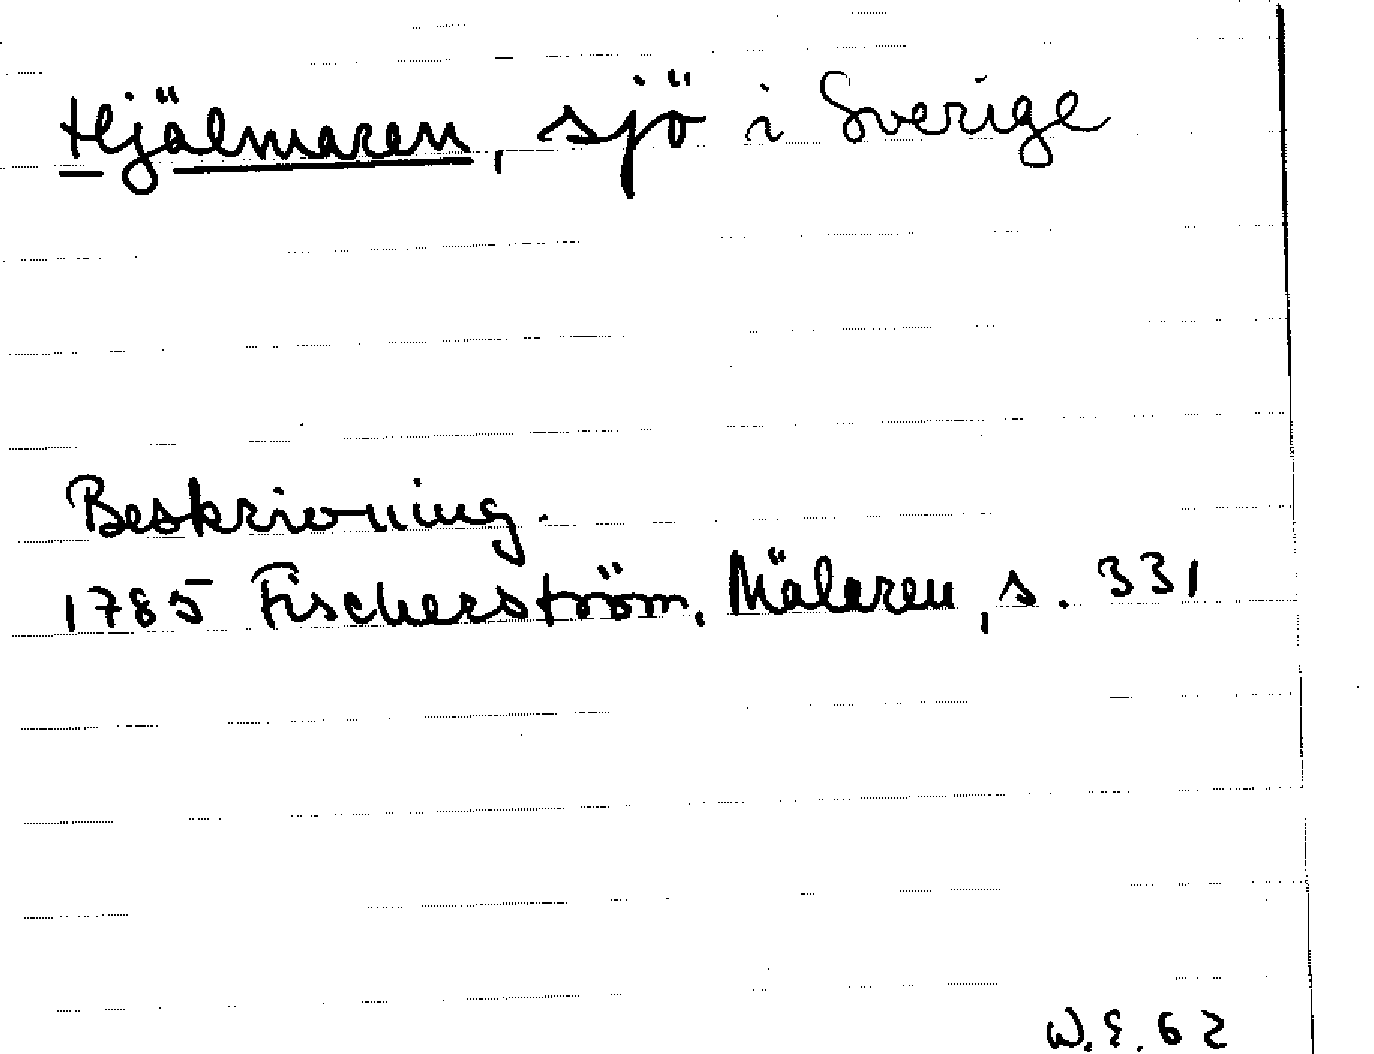 Hjälmaren, sjö i Sverige
Beskrivning.
1785 Fischerström, Mälaren, s. 331
W.E. 62